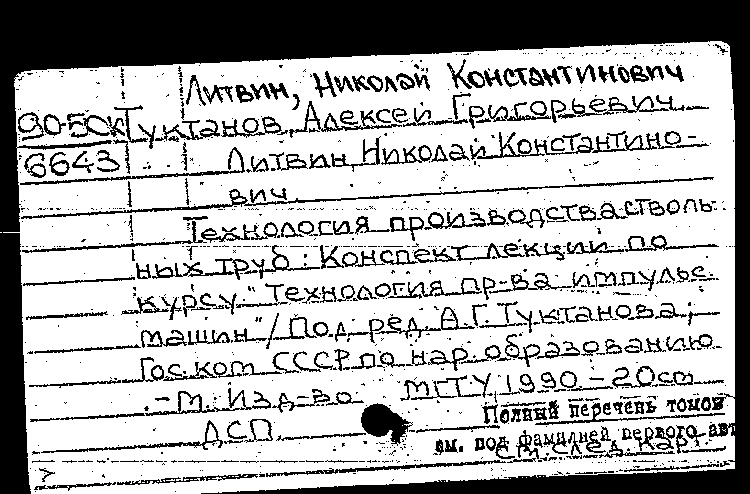 Литвин, Николай Константинович
90-5СК Туктанов, Алексей Григорьевич.
6643 Литвин, Николай Константино-
вич.
Технология производства стволь-
ных труб: Конспект лекций по
курсу "Технология пр-ва импульс.
машин"/Под ред. А.Г. Туктанова;
Гос. ком СССР по нар. образованию
.-М.: Изд-во МГТУ, 1990.-20см
ДСП.
Полный перечень томов
см. под фамилией первого авт
См. след. кар.